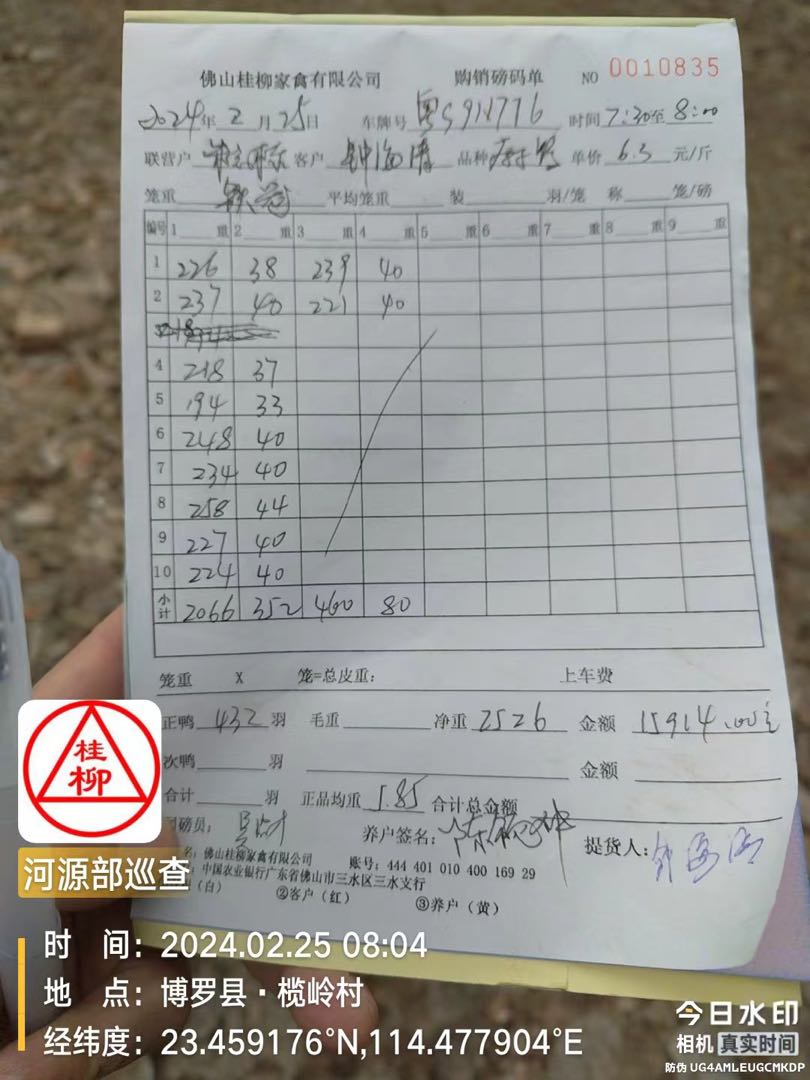 佛山桂柳家禽有限公司 购销磅码单 NO 0010835
2024年 2 月 25日 车牌号 粤S9N776 时间 7:30至 8:00
联营户 客户 钟海清 品种 单价 6.3 元/斤
笼重 平均笼重 装 羽/笼 称 笼/磅
编号 1 重 2 重 3 重 4 重 5 重 6 重 7 重 8 重 9 重
1 226 38 239 40
2 237 40 221 40
4 218 37
5 194 33
6 248 40
7 234 40
8 258 44
9 227 40
10 224 40
小计 2066 352 460 80
笼重 X 笼=总皮重: 上车费
正鸭 432 羽 毛重 净重 2526 金额 15914.00元
次鸭 羽 金额
合计 羽 正品均重 5.85 合计总金额
司磅员: 养户签名: 提货人:
名: 佛山桂柳家禽有限公司 账号: 444 401 010 400 169 29
中国农业银行广东省佛山市三水区三水支行
(白) ②客户(红) ③养户(黄)
桂
柳
河源部巡查
时 间: 2024.02.25 08:04
地 点: 博罗县·榄岭村
经纬度: 23.459176°N,114.477904°E
今日水印
相机 真实时间
防伪 UG4AMLEUGCMKDP